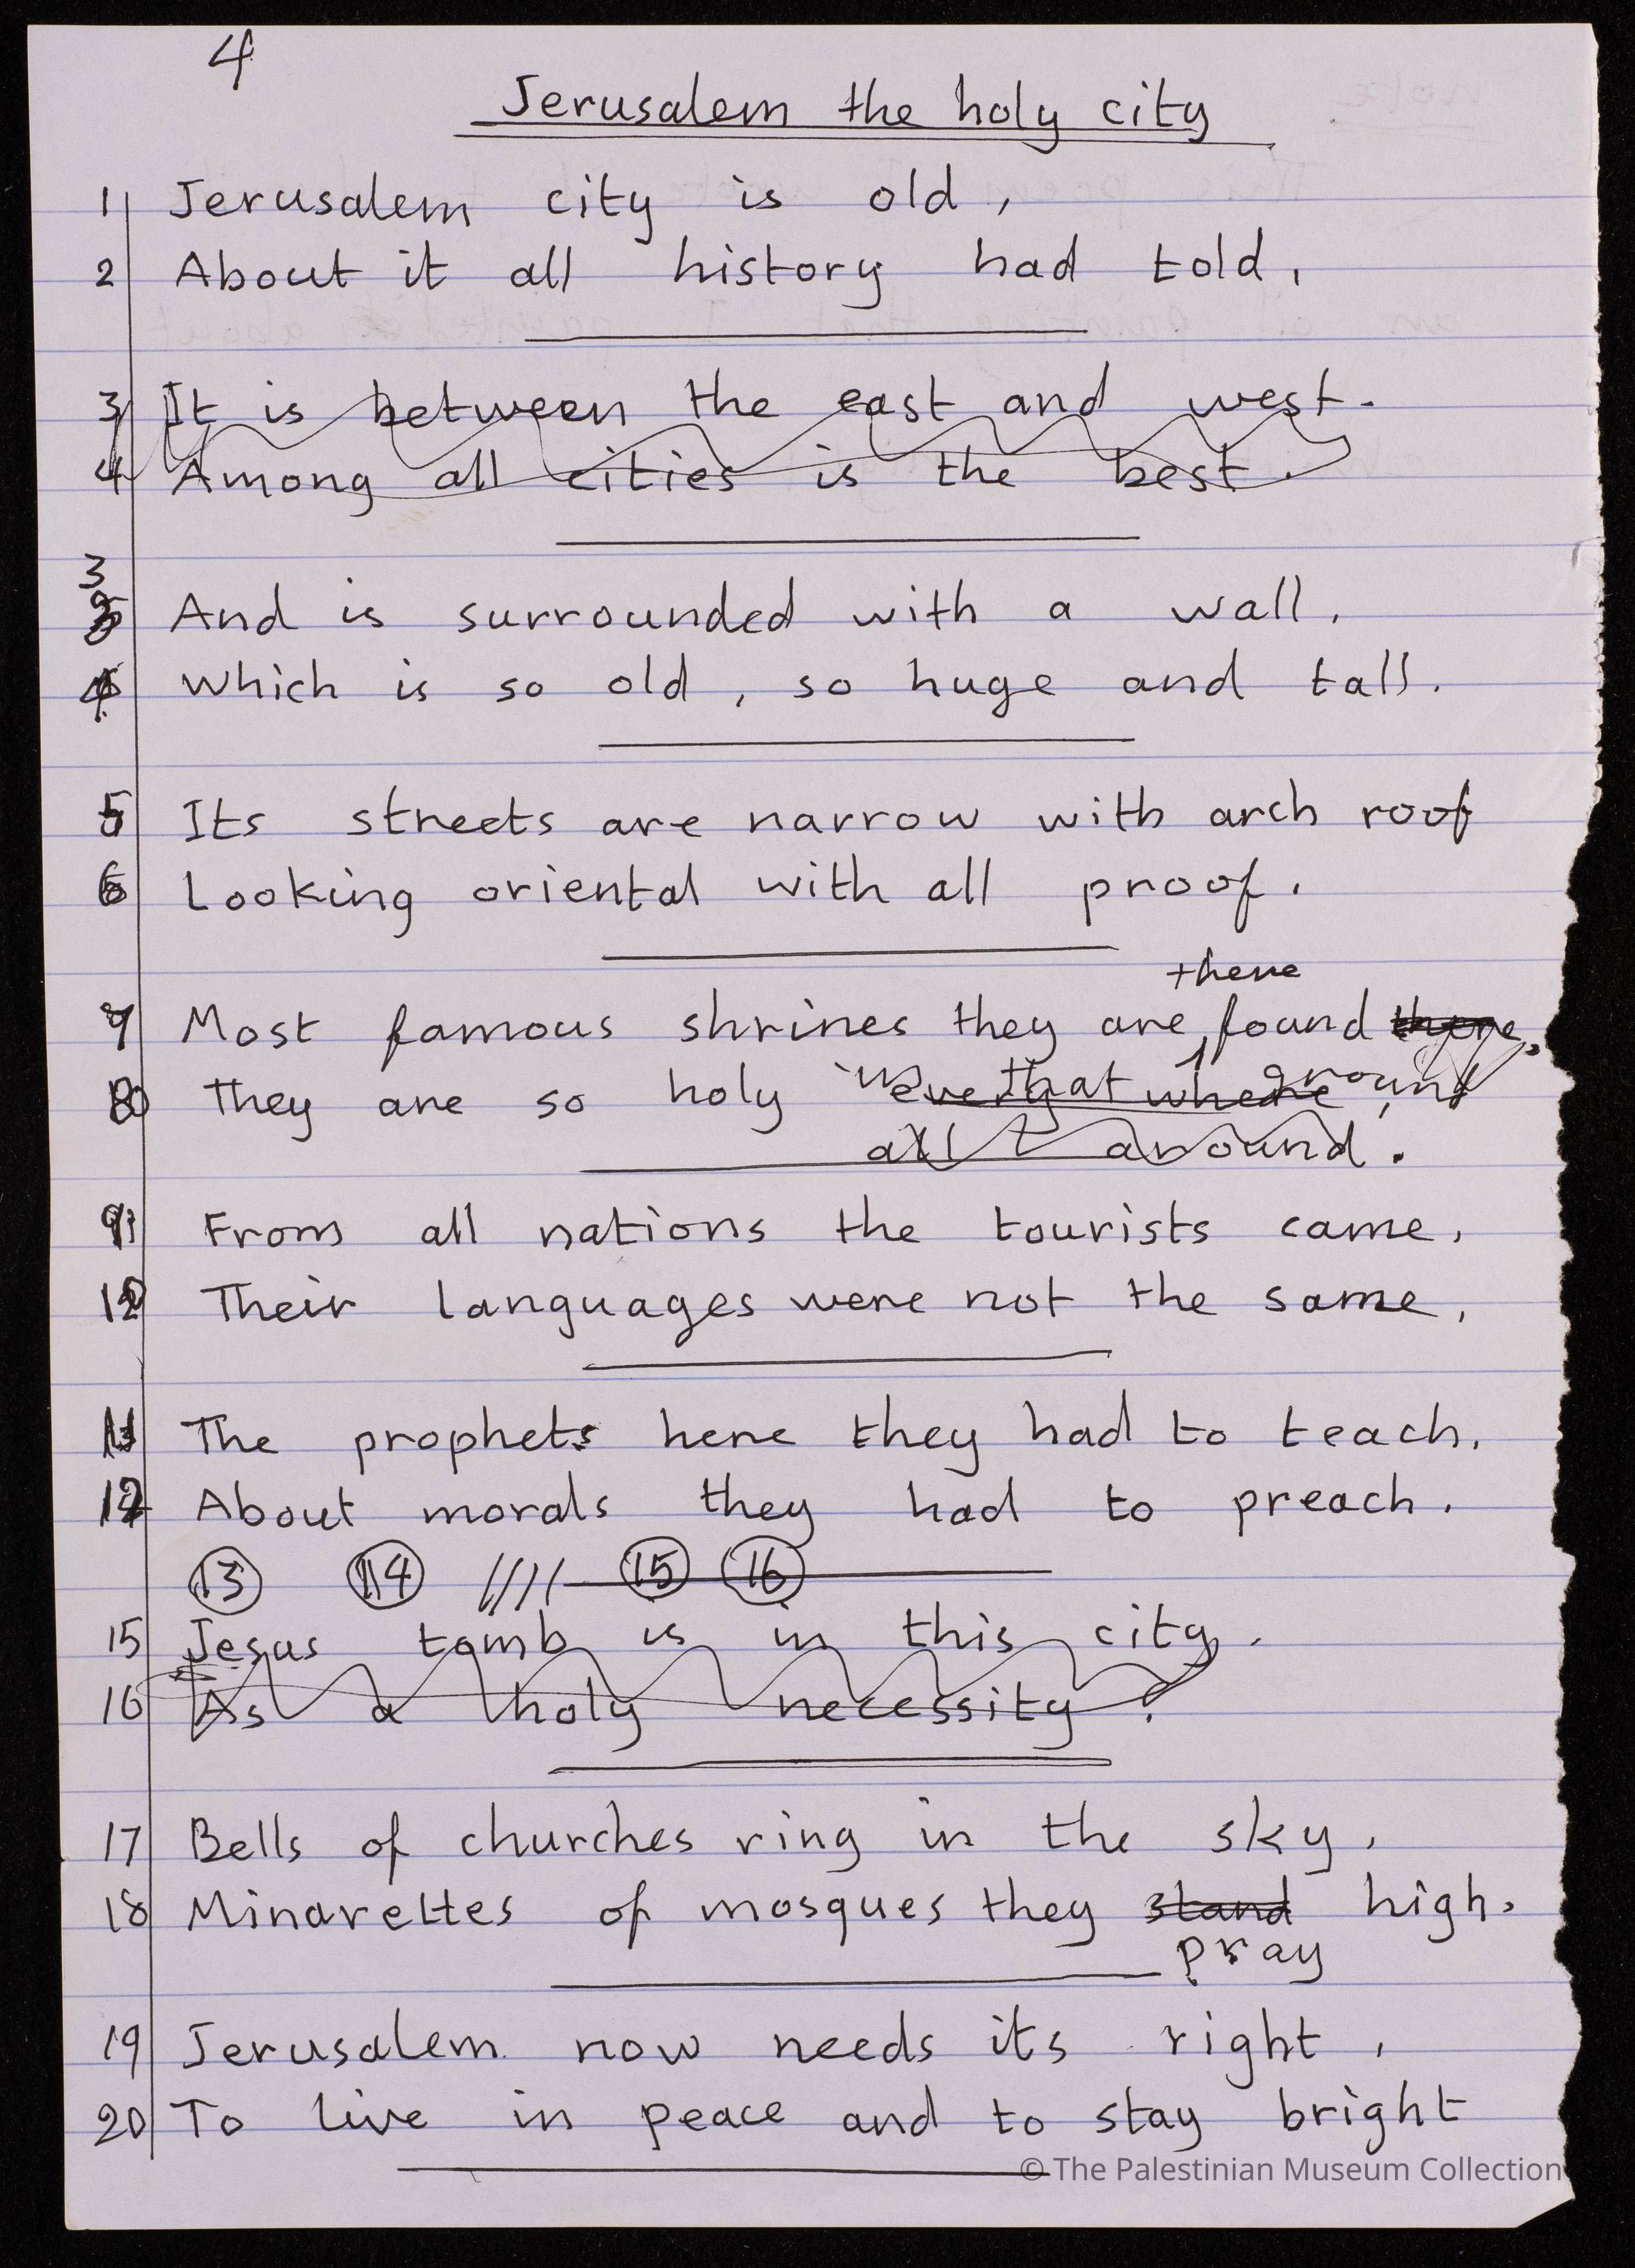 4
Jerusalem the holy city
1 Jerusalem city is old,
2 About it all history had told,
3 It is between the east and west.
4 Among all cities is the best.
3
And is surrounded with a wall,
4 Which is so old, so huge and tall.
5 Its streets are narrow with arch roof
6 Looking oriental with all proof,
there
Most famous shrines they are found there,
8 They are so holy in that ground
everywhere,
all around.
9 From all nations the tourists came,
Their languages were not the same,
11 The prophets here they had to teach,
12 About morals they had to preach.
13 14 15 16
15 Jesus tomb is in this city.
16 As a holy necessity.
17 Bells of churches ring in the sky,
18 Minarettes of mosques they stand high.
pray
19 Jerusalem now needs its right,
20 To live in peace and to stay bright
© The Palestinian Museum Collection